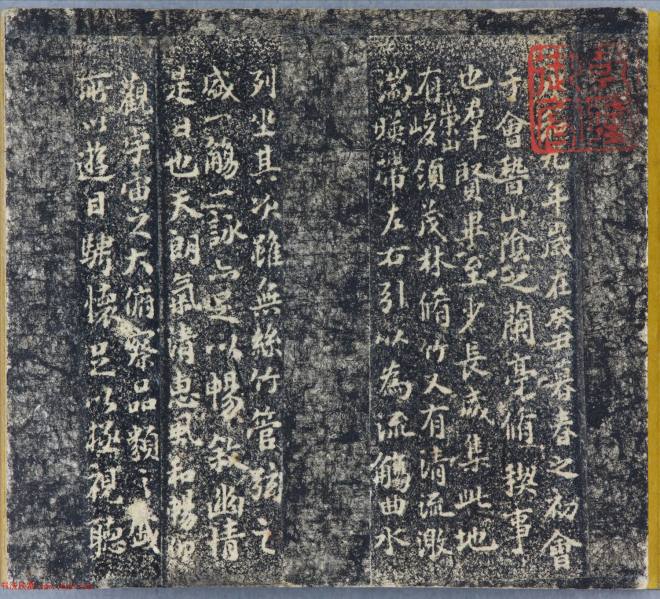 九年歲在癸丑暮春之初會
于會稽山陰之蘭亭脩稧事
也羣賢畢至少長咸集此地
有崇山峻領茂林脩竹又有清流激
湍暎帶左右引以為流觴曲水
列坐其次雖無絲竹管弦之
盛一觴一詠亦足以暢敘幽情
是日也天朗氣清惠風和暢仰
觀宇宙之大俯察品類之盛
所以遊目騁懷足以極視聽